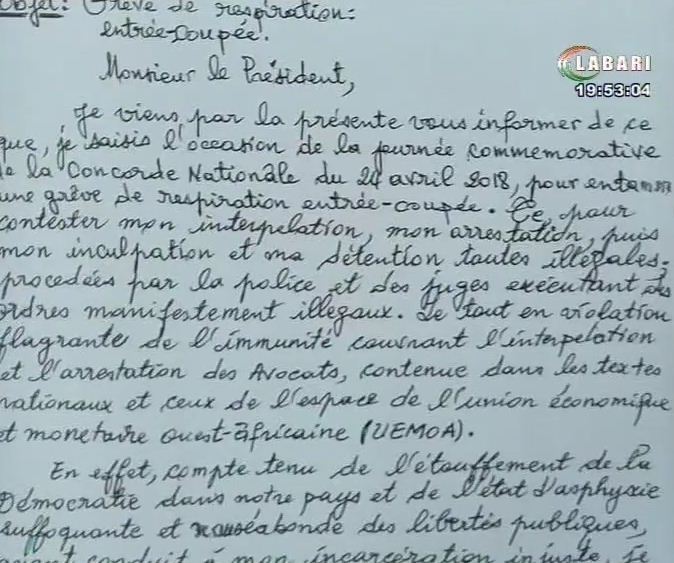 Objet: Grève de respiration:
entrée-coupée.
Monsieur le Président,
LABARI
19:53:04
Je viens par la présente vous informer de ce
que, je saisis l'occasion de la journée commemorative
de la Concorde Nationale du 24 avril 2018, pour entamer
une grève de respiration entrée-coupée. Ce, pour
contester mon interpelation, mon arrestation, puis
mon inculpation et ma détention toutes illégales;
procedées par la police et des juges exécutant des
ordres manifestement illégaux. Le tout en violation
flagrante de l'immunité couvrant l'interpelation
et l'arrestation des Avocats, contenue dans les textes
nationaux et ceux de l'espace de l'union économique
et monetaire ouest-africaine (UEMOA).
En effet, compte tenu de l'étouffement de la
Démocratie dans notre pays et de l'état d'asphyxie
suffoquante et nauséabonde des libertés publiques,
ayant conduit à mon incarcération injuste, je